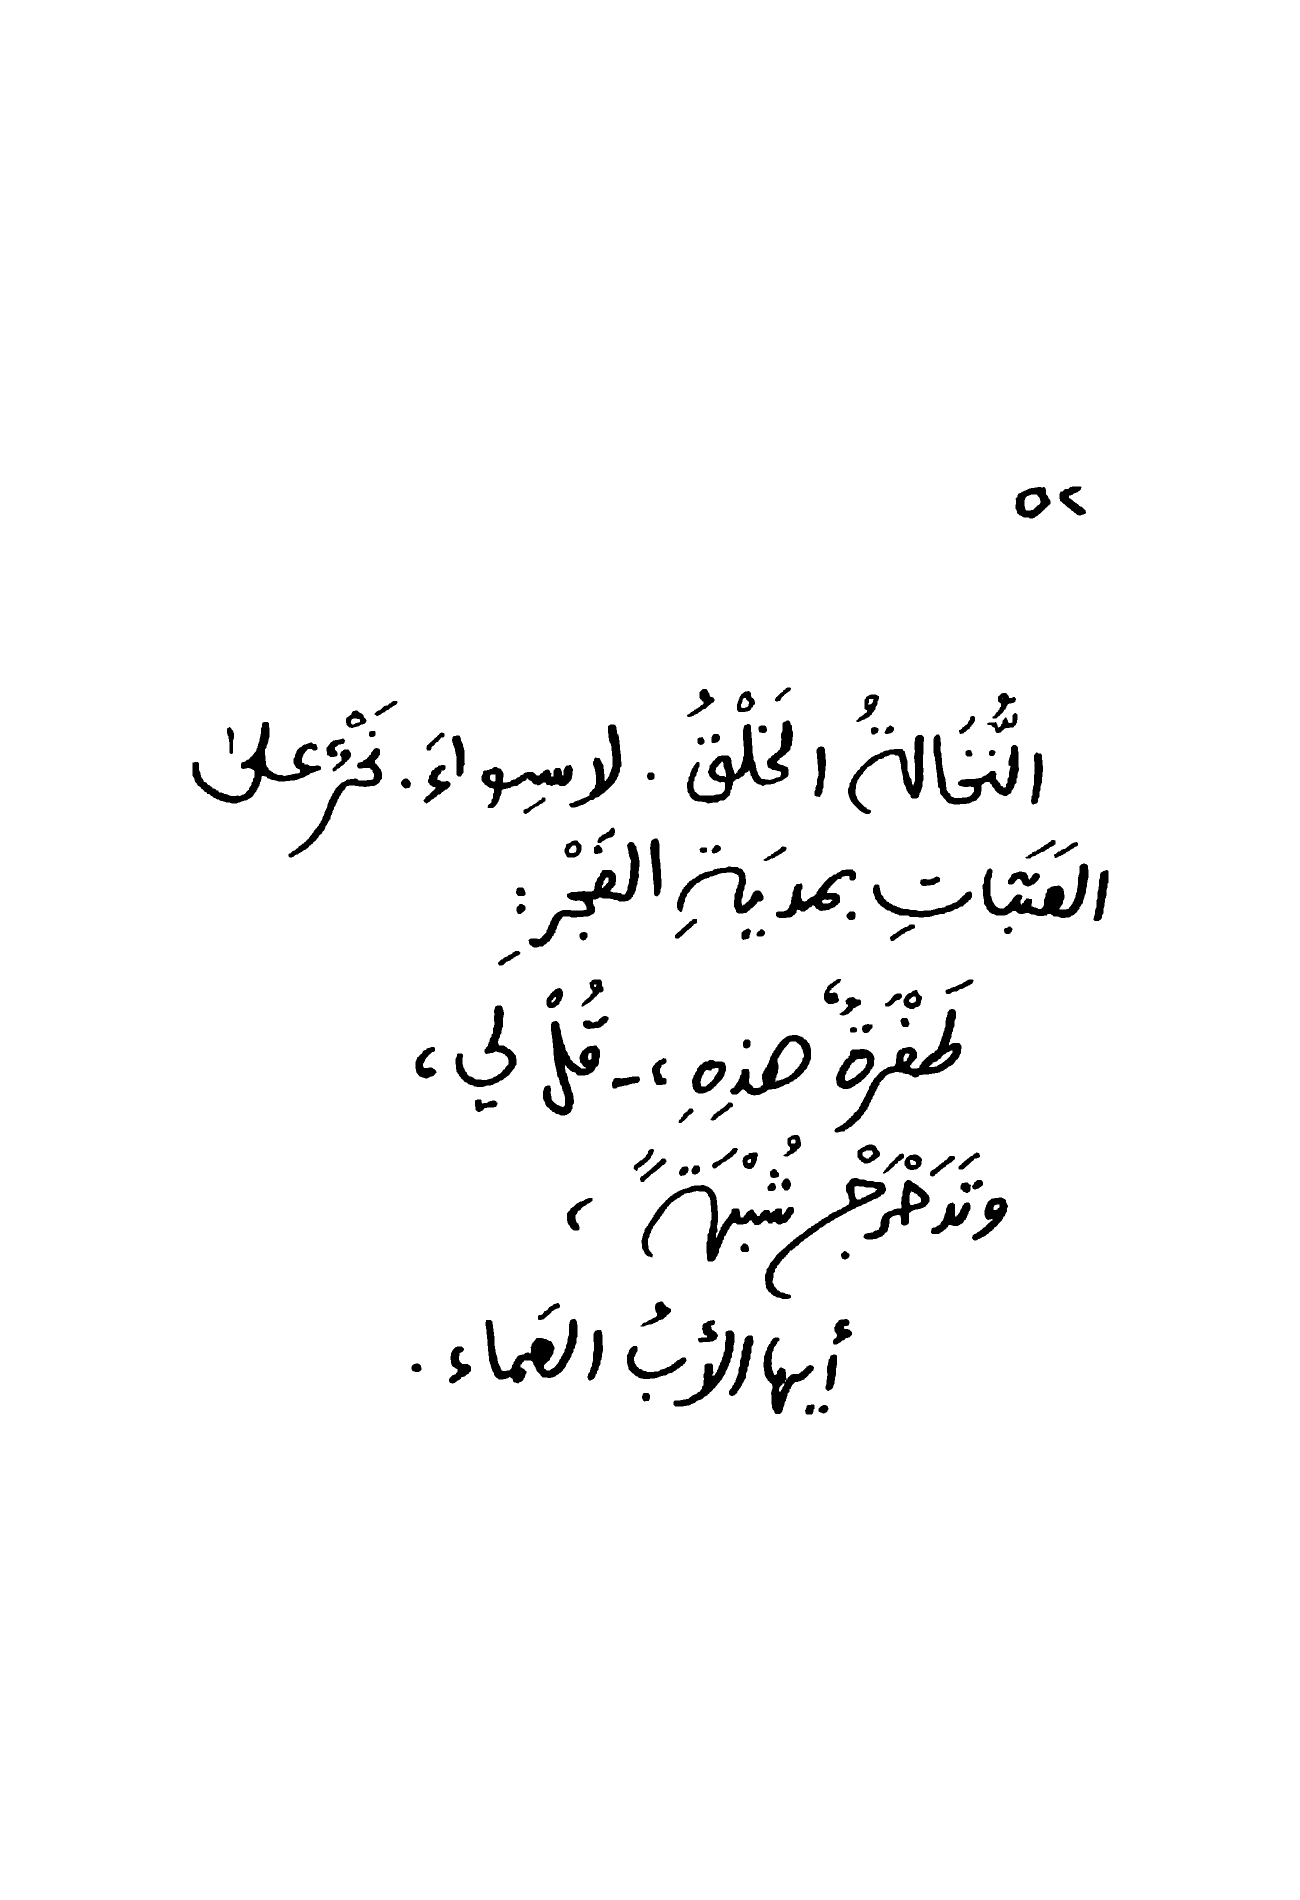 ٥٢
النُّخَالةُ الخَلْقُ . لا سِواءَ . نَحْرٌ علىٰ
العَتَبَاتِ بمديَةِ الفَجْرِ :
طَفْرَةٌ هذِهِ ،- قُلْ لي ،
وتَدَحْرَجْ شُبْهَةً ،
أيها الأبُ العَماء .